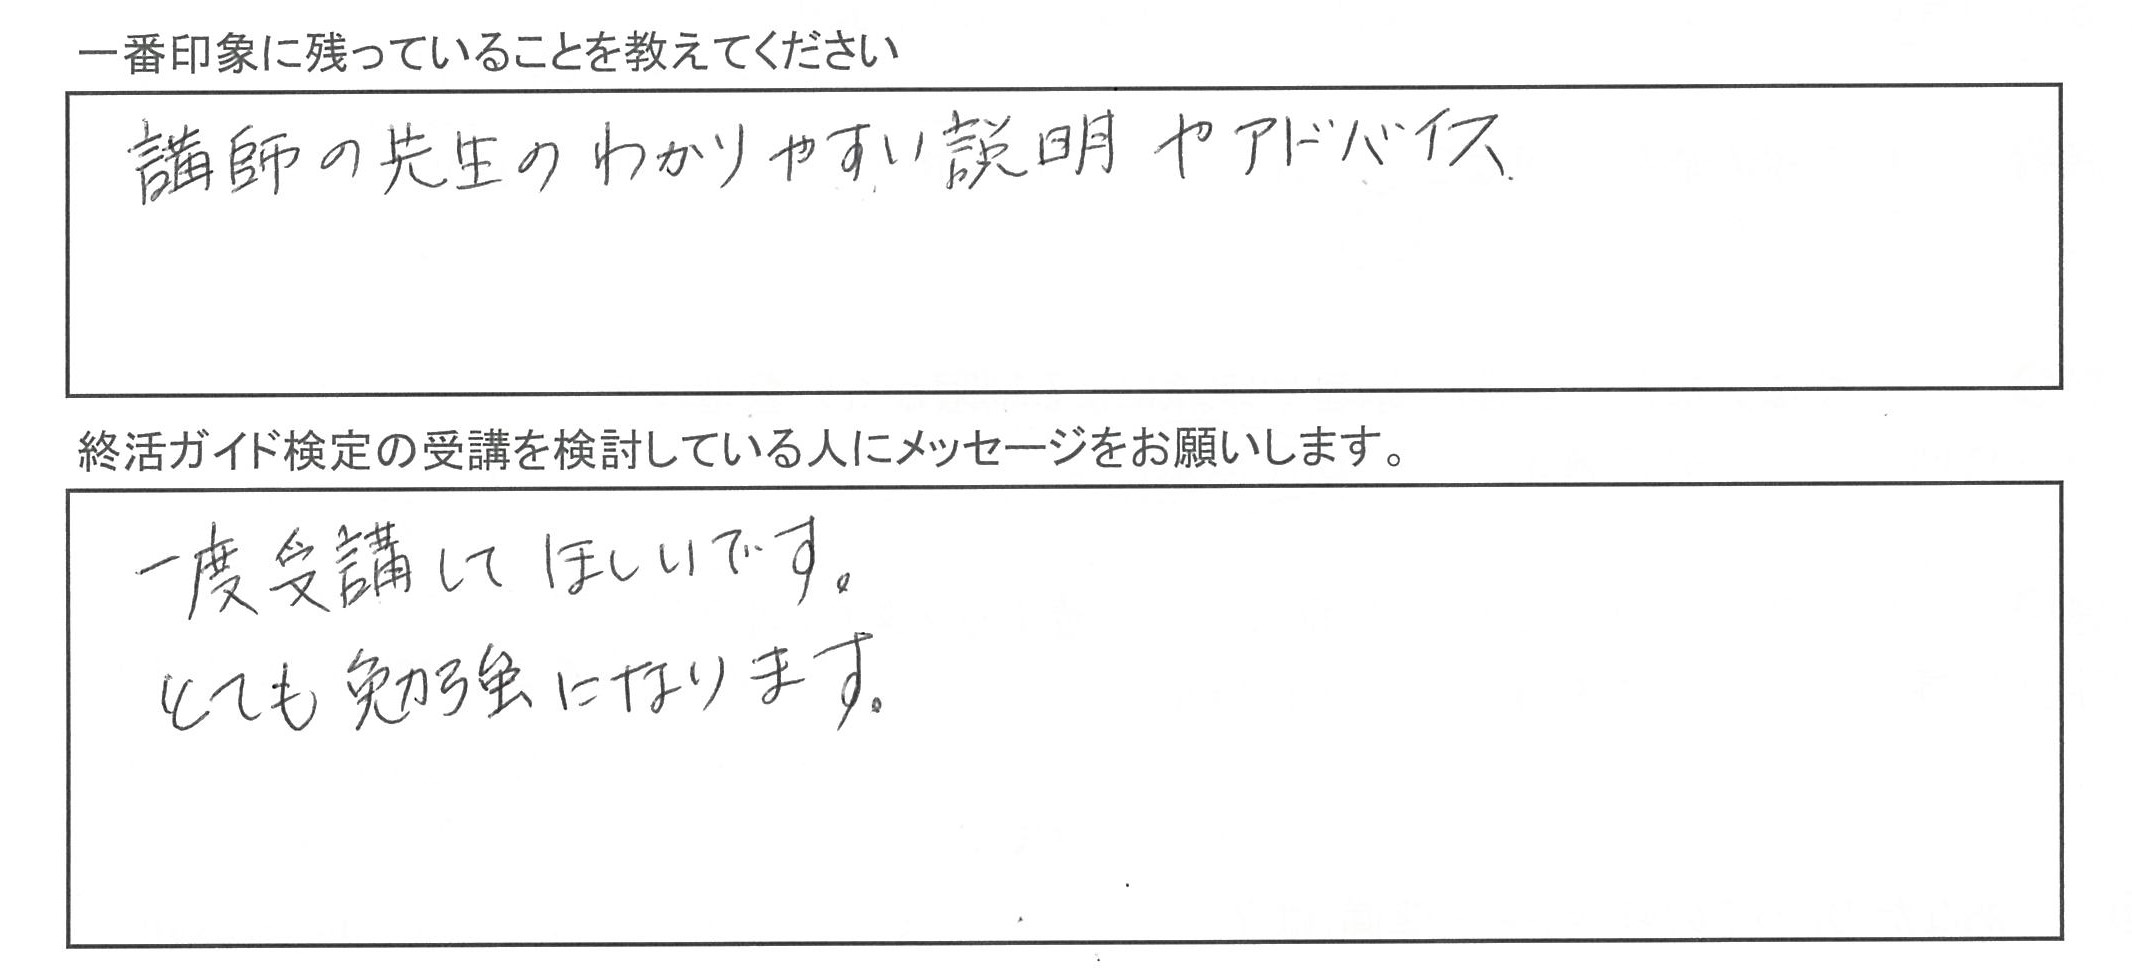 一番印象に残っていることを教えてください
講師の先生のわかりやすい説明やアドバイス
終活ガイド検定の受講を検討している人にメッセージをお願いします。
一度受講してほしいです。
とても勉強になります。